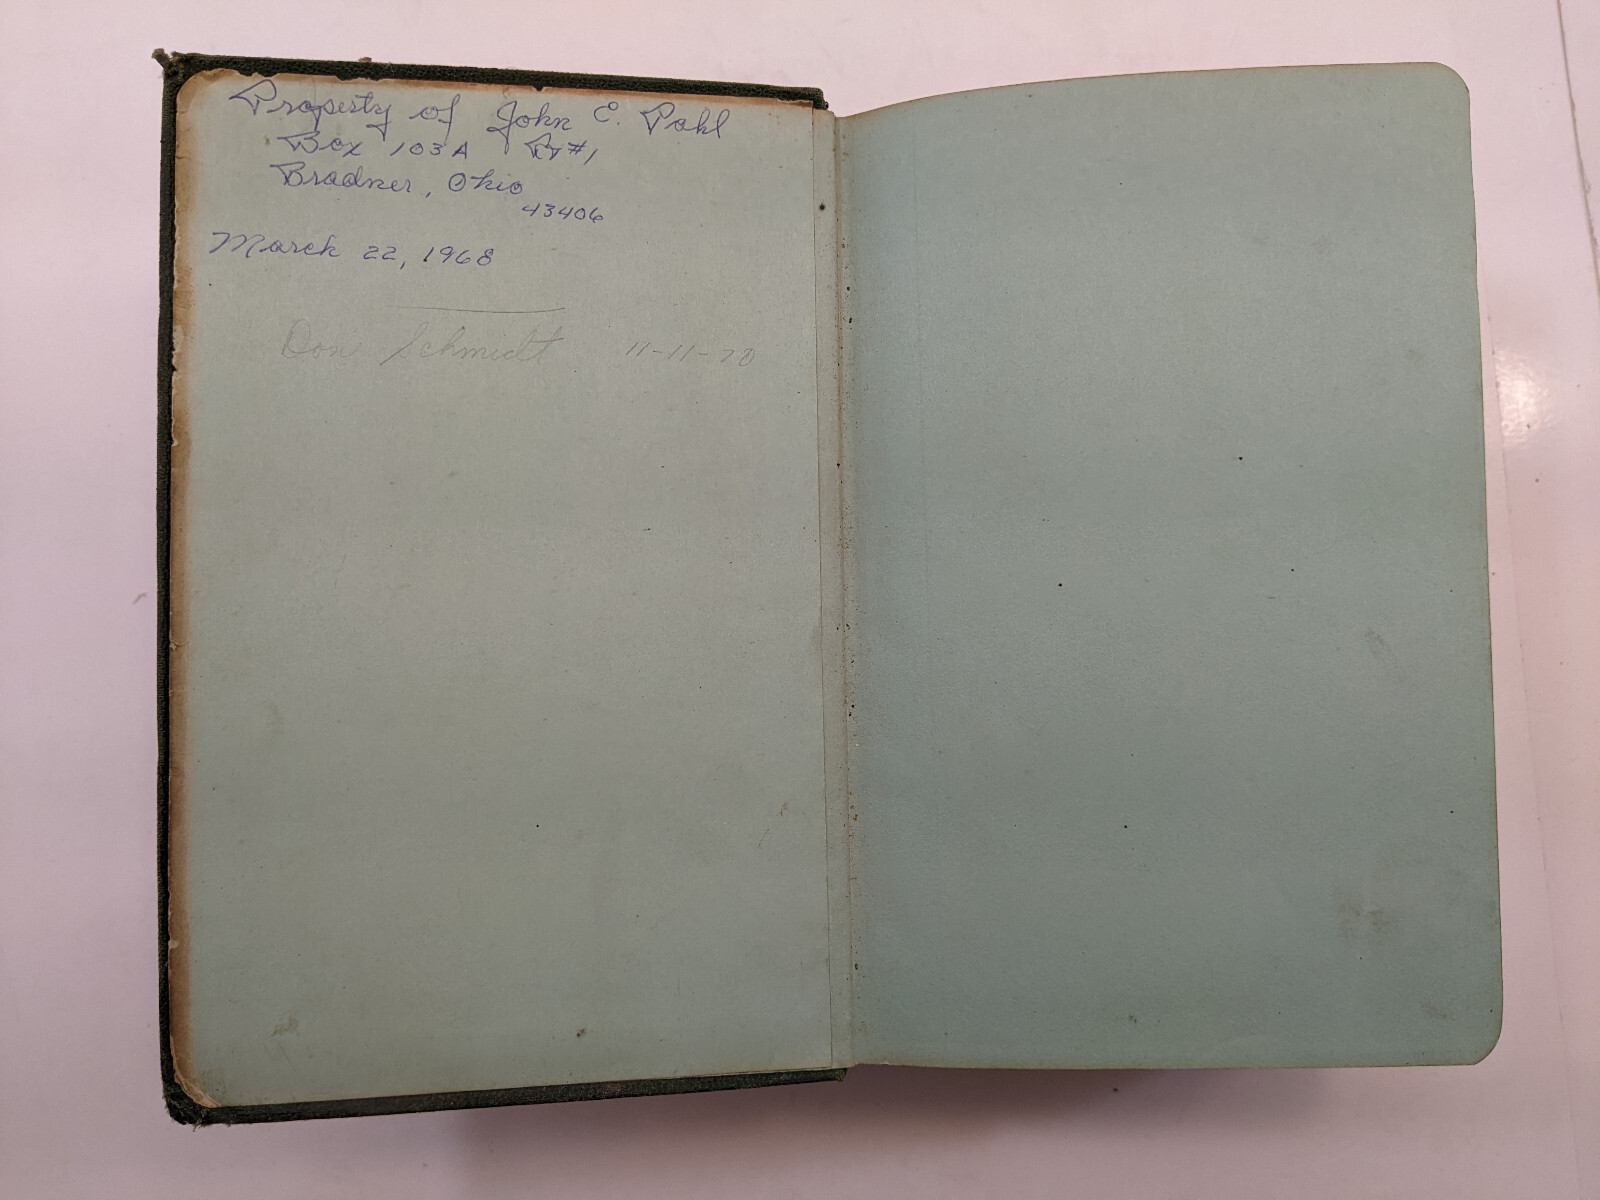 Property of John E. Pahl
Box 103A Rt #1
Bradner, Ohio
43406
March 22, 1968
Don Schmidt 11-11-70